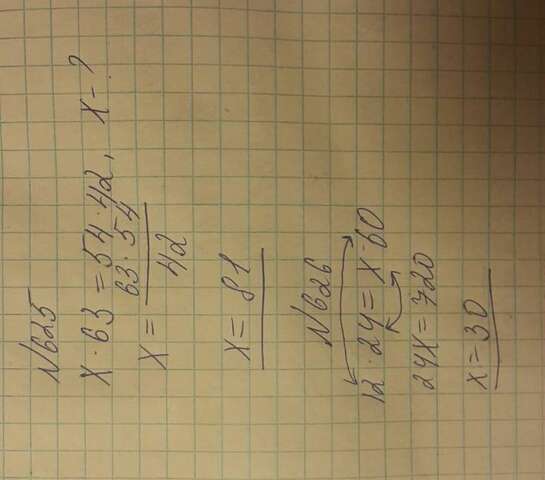 N625
x · 63 = 54 · 42, x - ?
x = 63 · 54
42
x = 81
N626
12 · 24 = x · 60
24x = 720
x = 30